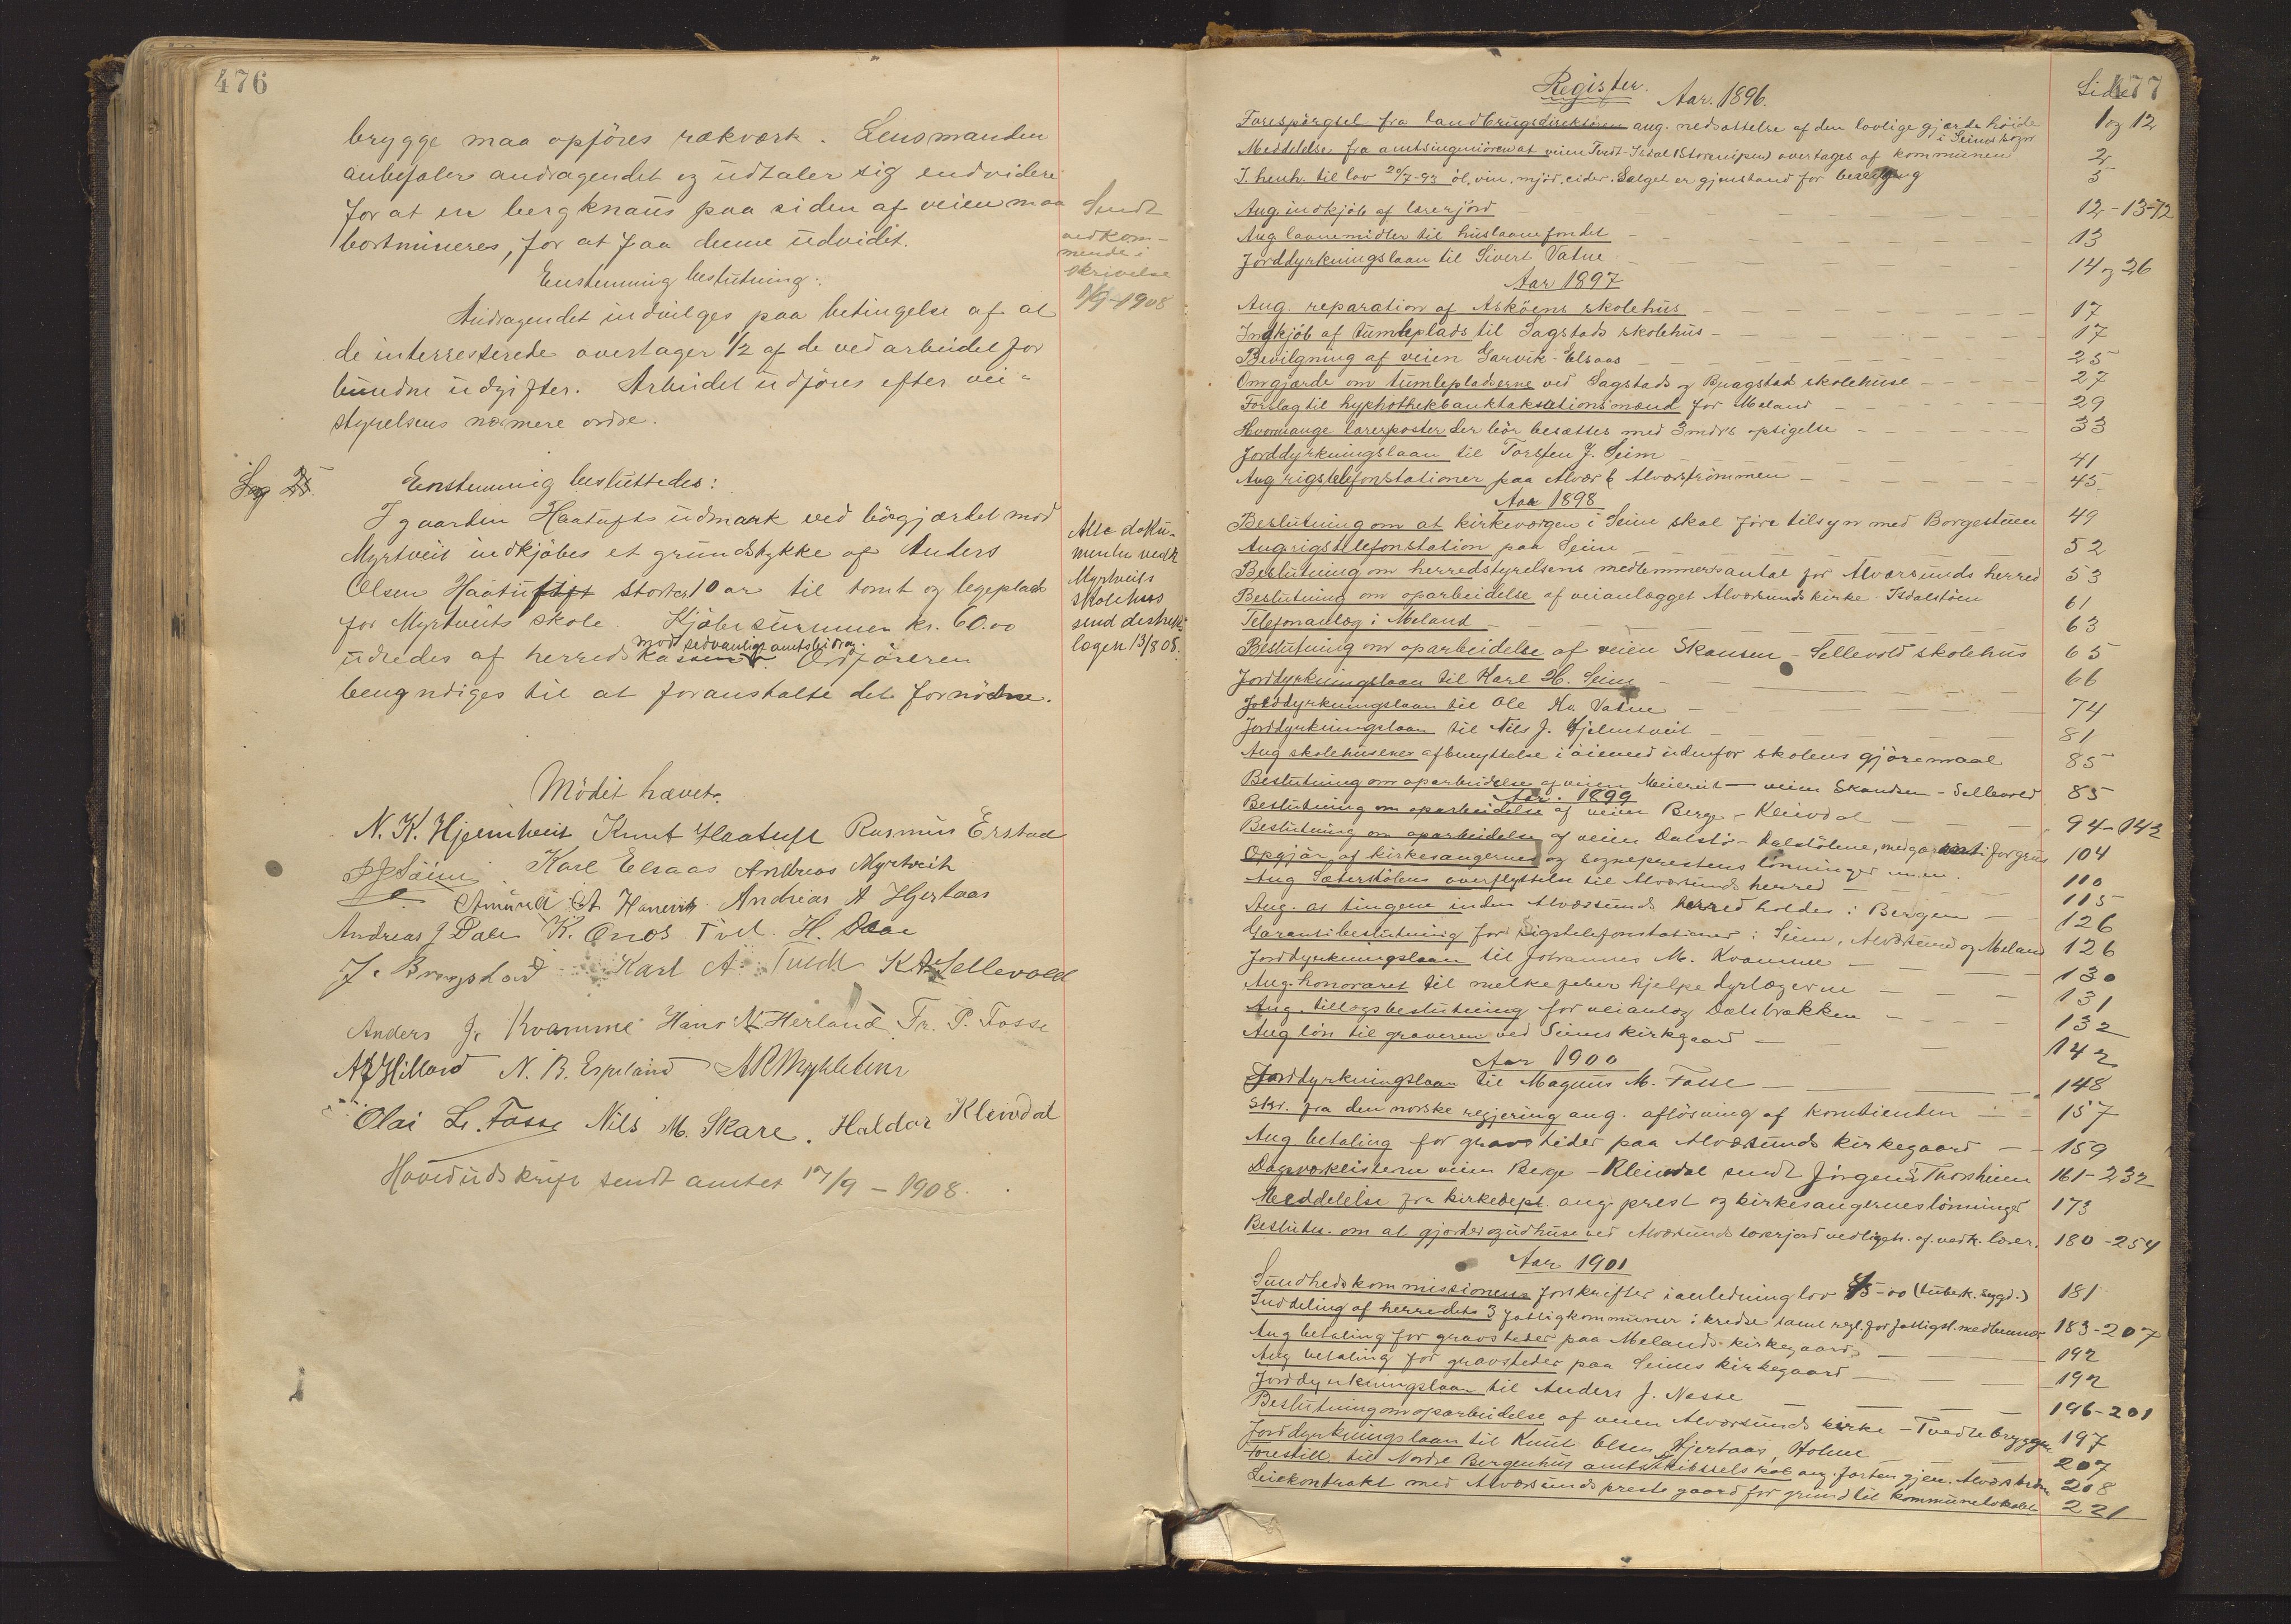 476
brygge maa opföres rækværk. Lensmanden
anbefaler andragendet og udtaler sig endvidere
for at en bergknaus paa siden af veien maa
bortmineres, for at faa denne udvidet.
Sendt
vedkom-
mende i
skrivelse
1/9-1908
Enstemmig beslutning:
Andragendet indvilges paa betingelse af at
de interresserede overtager 1/2 af de ved arbeidet for
bundne udgifter. Arbeidet udföres efter vei-
styrelsens nærmere ordre.
Sag 25.
Enstemmig besluttedes:
I gaarden Haatufts udmark ved bögjærdet mod
Myrtveit indkjöbes et grundstykke af Anders
Olsen Haatuft stort 10 ar til tomt og legeplads
for Myrtveits skole. Kjöbesummen kr. 60.00
mod sedvanligt amtsbidrag.
udredes af herredskassen. Ordföreren
bemyndiges til at foranstalte det fornödne.
Alle doku-
menter vedk
Myrtveits
skolehus
send distrikts
lægen 13/8 08.
Mödet hævet.
N. K. Hjelmtveit Knut Haatuft Rasmus Erstad
Karl Elsaas Andreas Myrtveit
Amund A Hanevik Andreas A Hjertaas
Andreas J Dale K. Ones Tvet. H. Daae
J. Bragstad Karl A. Tvedt K A Sellevold
Anders J. Kvamme Hans N Herland Fr. P. Fosse
N. B. Espeland
Olai L. Fosse Nils M. Skare. Haldor Kleivdal
Hovedudskrift sendt amtet 17/9 - 1908.
477
Register. Aar. 1896. Side
Forespörgsel fra landbrugsdirektören ang. nedsættelse af den lovlige gjærdehöide i Seims sogn 1 og 12
Meddelelse fra amtsingeniören at veien Tvedt-Isdal (Storemyren) overtages af kommunen 2
I henh. til lov 20/7-93 öl, vin, mjöd, cider. Salget er gjenstand for bevilgning 5
Ang. indkjöb af lærerjord 12-13-72
Ang. laanemidler til huslaanefondet 13
Jorddyrkningslaan til Sivert Vatne 14 og 26
Aar 1897
Ang. reparation af Asköens skolehus 17
Indkjöb af tumleplads til Sagstads skolehus 17
Bevilgning af veien Garvik-Elsaas 25
Omgjærde om tumlepladserne ved Sagstads og Bragstad skolehuse 27
Forslag til hyphothekbanktakstationsmænd for Meland 29
Hvormange lærerposter der bör besættes med 3 mdrs opsigelse 33
Jorddyrkningslaan til Torsten J. Seim 41
Ang rigstelefonstationer paa Alvær & Alverströmmen 45
Aar 1898
Beslutning om at kirkeværgen i Seim skal före tilsyn med Borgestuen 49
Ang. rigstelefonstation paa Seim 52
Beslutning om herredstyrelsens medlemmersantal for Alværsunds herred 53
Beslutning om oparbeidelse af veianlægget Alværsunds kirke - Isdalstöen 61
Telefonanlæg i Meland 63
Beslutning om oparbeidelse af veien Skansen - Sellevold skolehus 65
Jorddyrkningslaan til Karl H. Seim 66
Jorddyrkningslaan til Ole Kn. Vatne 74
Jorddyrkningslaan til Nils J. Hjelmtveit 81
Ang skolehusenes afbenyttelse i öiemed udenfor skolens gjöremaal 85
Beslutning om oparbeidelse af veien Meieriet - veien Skandsen - Sellevold 85
Aar. 1899
Beslutning om oparbeidelse af veien Berge - Kleivdal 94-142
Beslutning om oparbeidelse af veien Dalstö - Dalstölene, med garanti for grus 104
Opgjör af kirkesangernes og sogneprestens lönninger m.m. 110
Ang Sæterstölens overflyttelse til Alværsunds herred 115
Ang. at tingene inden Alværsunds herred holdes i Bergen 126
Garantibeslutning for rigstelefonstationer i Seim, Alværsund og Meland 126
Jorddyrkningslaan til Johannes M. Kvamme 130
Ang. honoraret til melkefeber hjelpe dyrlægerne 131
Ang. tillægsbeslutning for veianlæg Dalsbrækken 132
Ang lön til graveren ved Seims kirkgaard 142
Aar 1900
Jorddyrkningslaan til Magnus M. Fosse 148
Skr. fra den norske regjering ang. aflösning af korntienden 157
Ang betaling for gravsteder paa Alværsunds kirkegaard 159
Dagsværklisterne veien Berge - Kleivdal sendt Jörgen Thorsheim 161-232
Meddelelse fra kirkedept. ang. prest og kirkesangernes lönninger 173
Beslutn. om at gjærder og udhuse ved Alværsunds lærerjord vedligeh. af vedk. lærer. 180-254
Aar 1901
Sundhedskommissionens forskrifter i anledning lov 8/5-00 (tuberk. sygd.) 181
Inddeling af herredets 3 fattigkommuner i kredse samt regl. for fattigst. medlemmer 183-207
Ang betaling for gravsteder paa Melands kirkegaard 192
Ang betaling for gravsteder paa Seims kirkegaard 192
Jorddyrkningslaan til Anders J. Nesse 196-201
Beslutning om oparbeidelse af veien Alværsunds kirke - Tvedtebryggen 197
Jorddyrkningslaan til Knut Olsen Hjertaas, Holme 207
Forestill. til Nordre Bergenhus amts Skibsselskab ang. farten gjen. Alværström 208
Leiekontrakt med Alværsunds prestegaard for grund til kommunelokalet 221